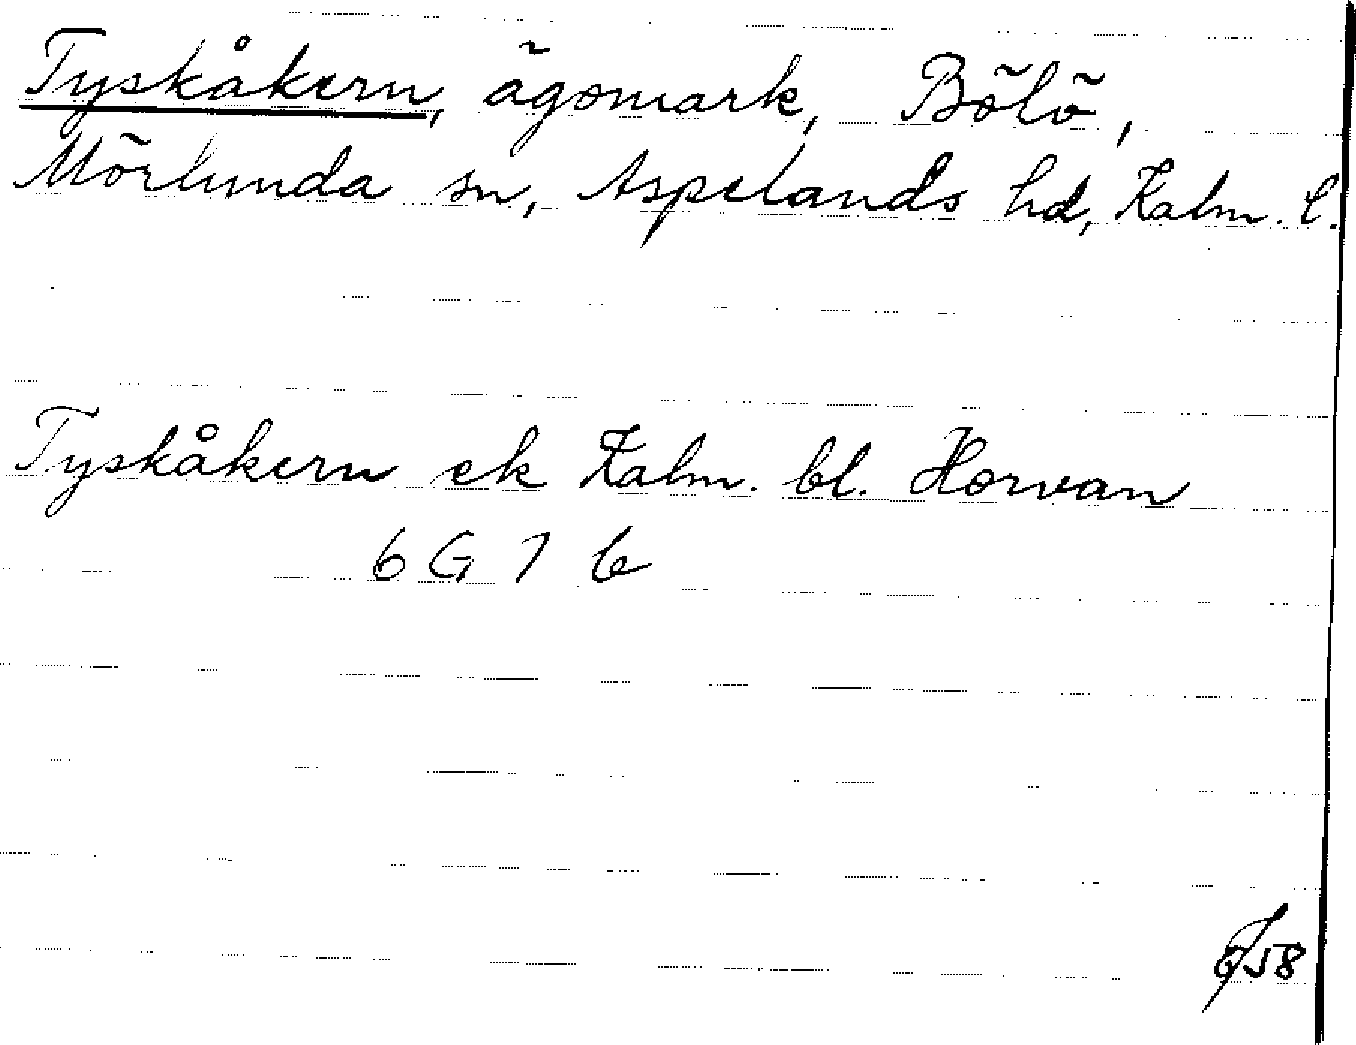 Tyskåkern, ägomark, Bölö,
Mörlunda sn, Aspelands hd, Kalm. l.
Tyskåkern ek Kalm. bl. Horvan
6 G 7 b